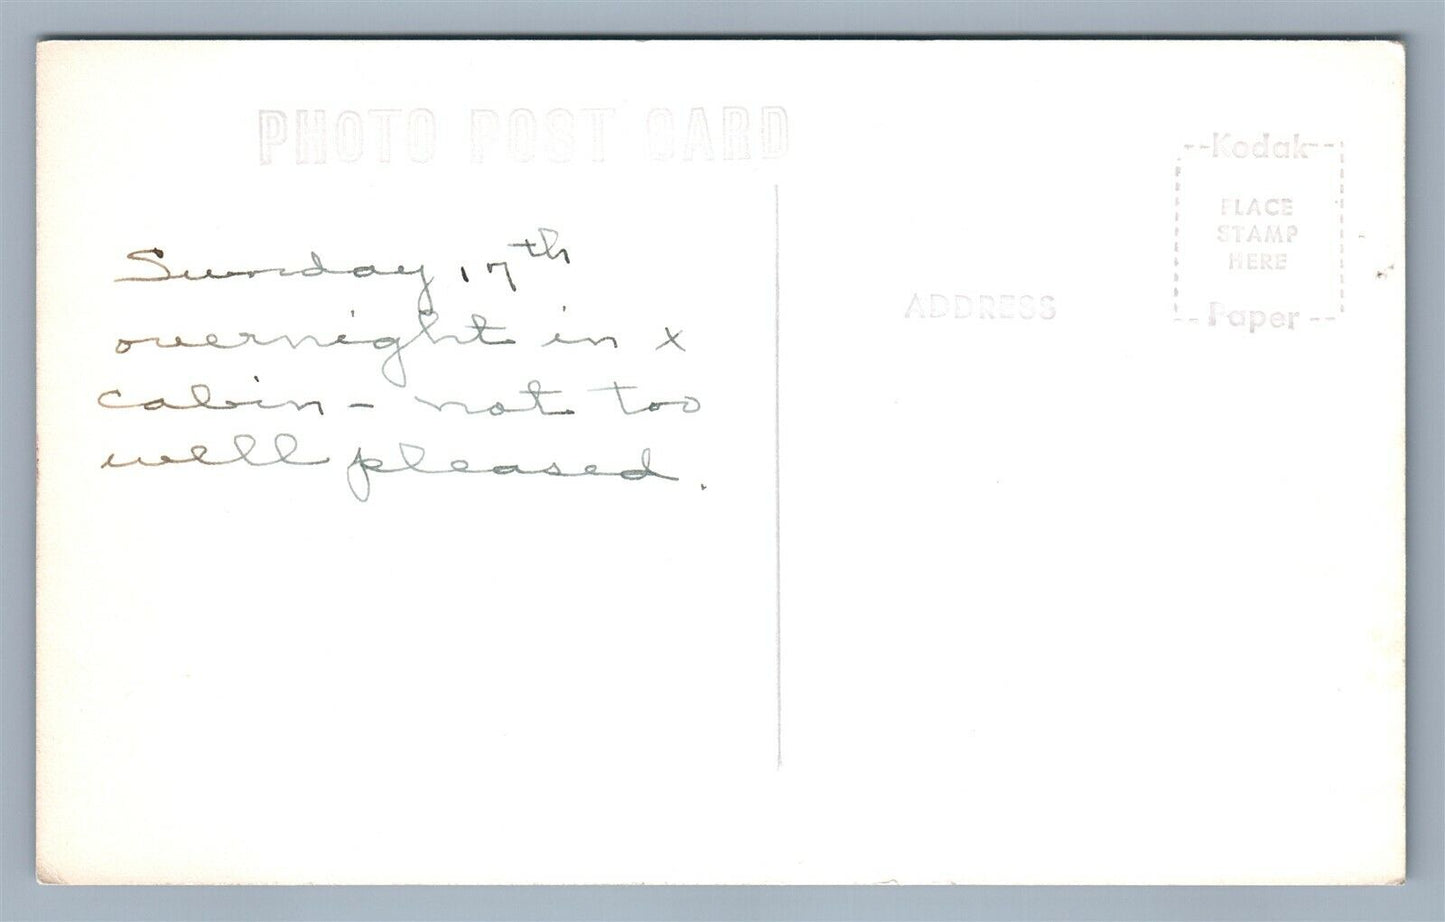 PHOTO POST CARD
Sunday, 17th
overnight in x
cabin - not too
well pleased.
ADDRESS
Kodak
PLACE
STAMP
HERE
Paper